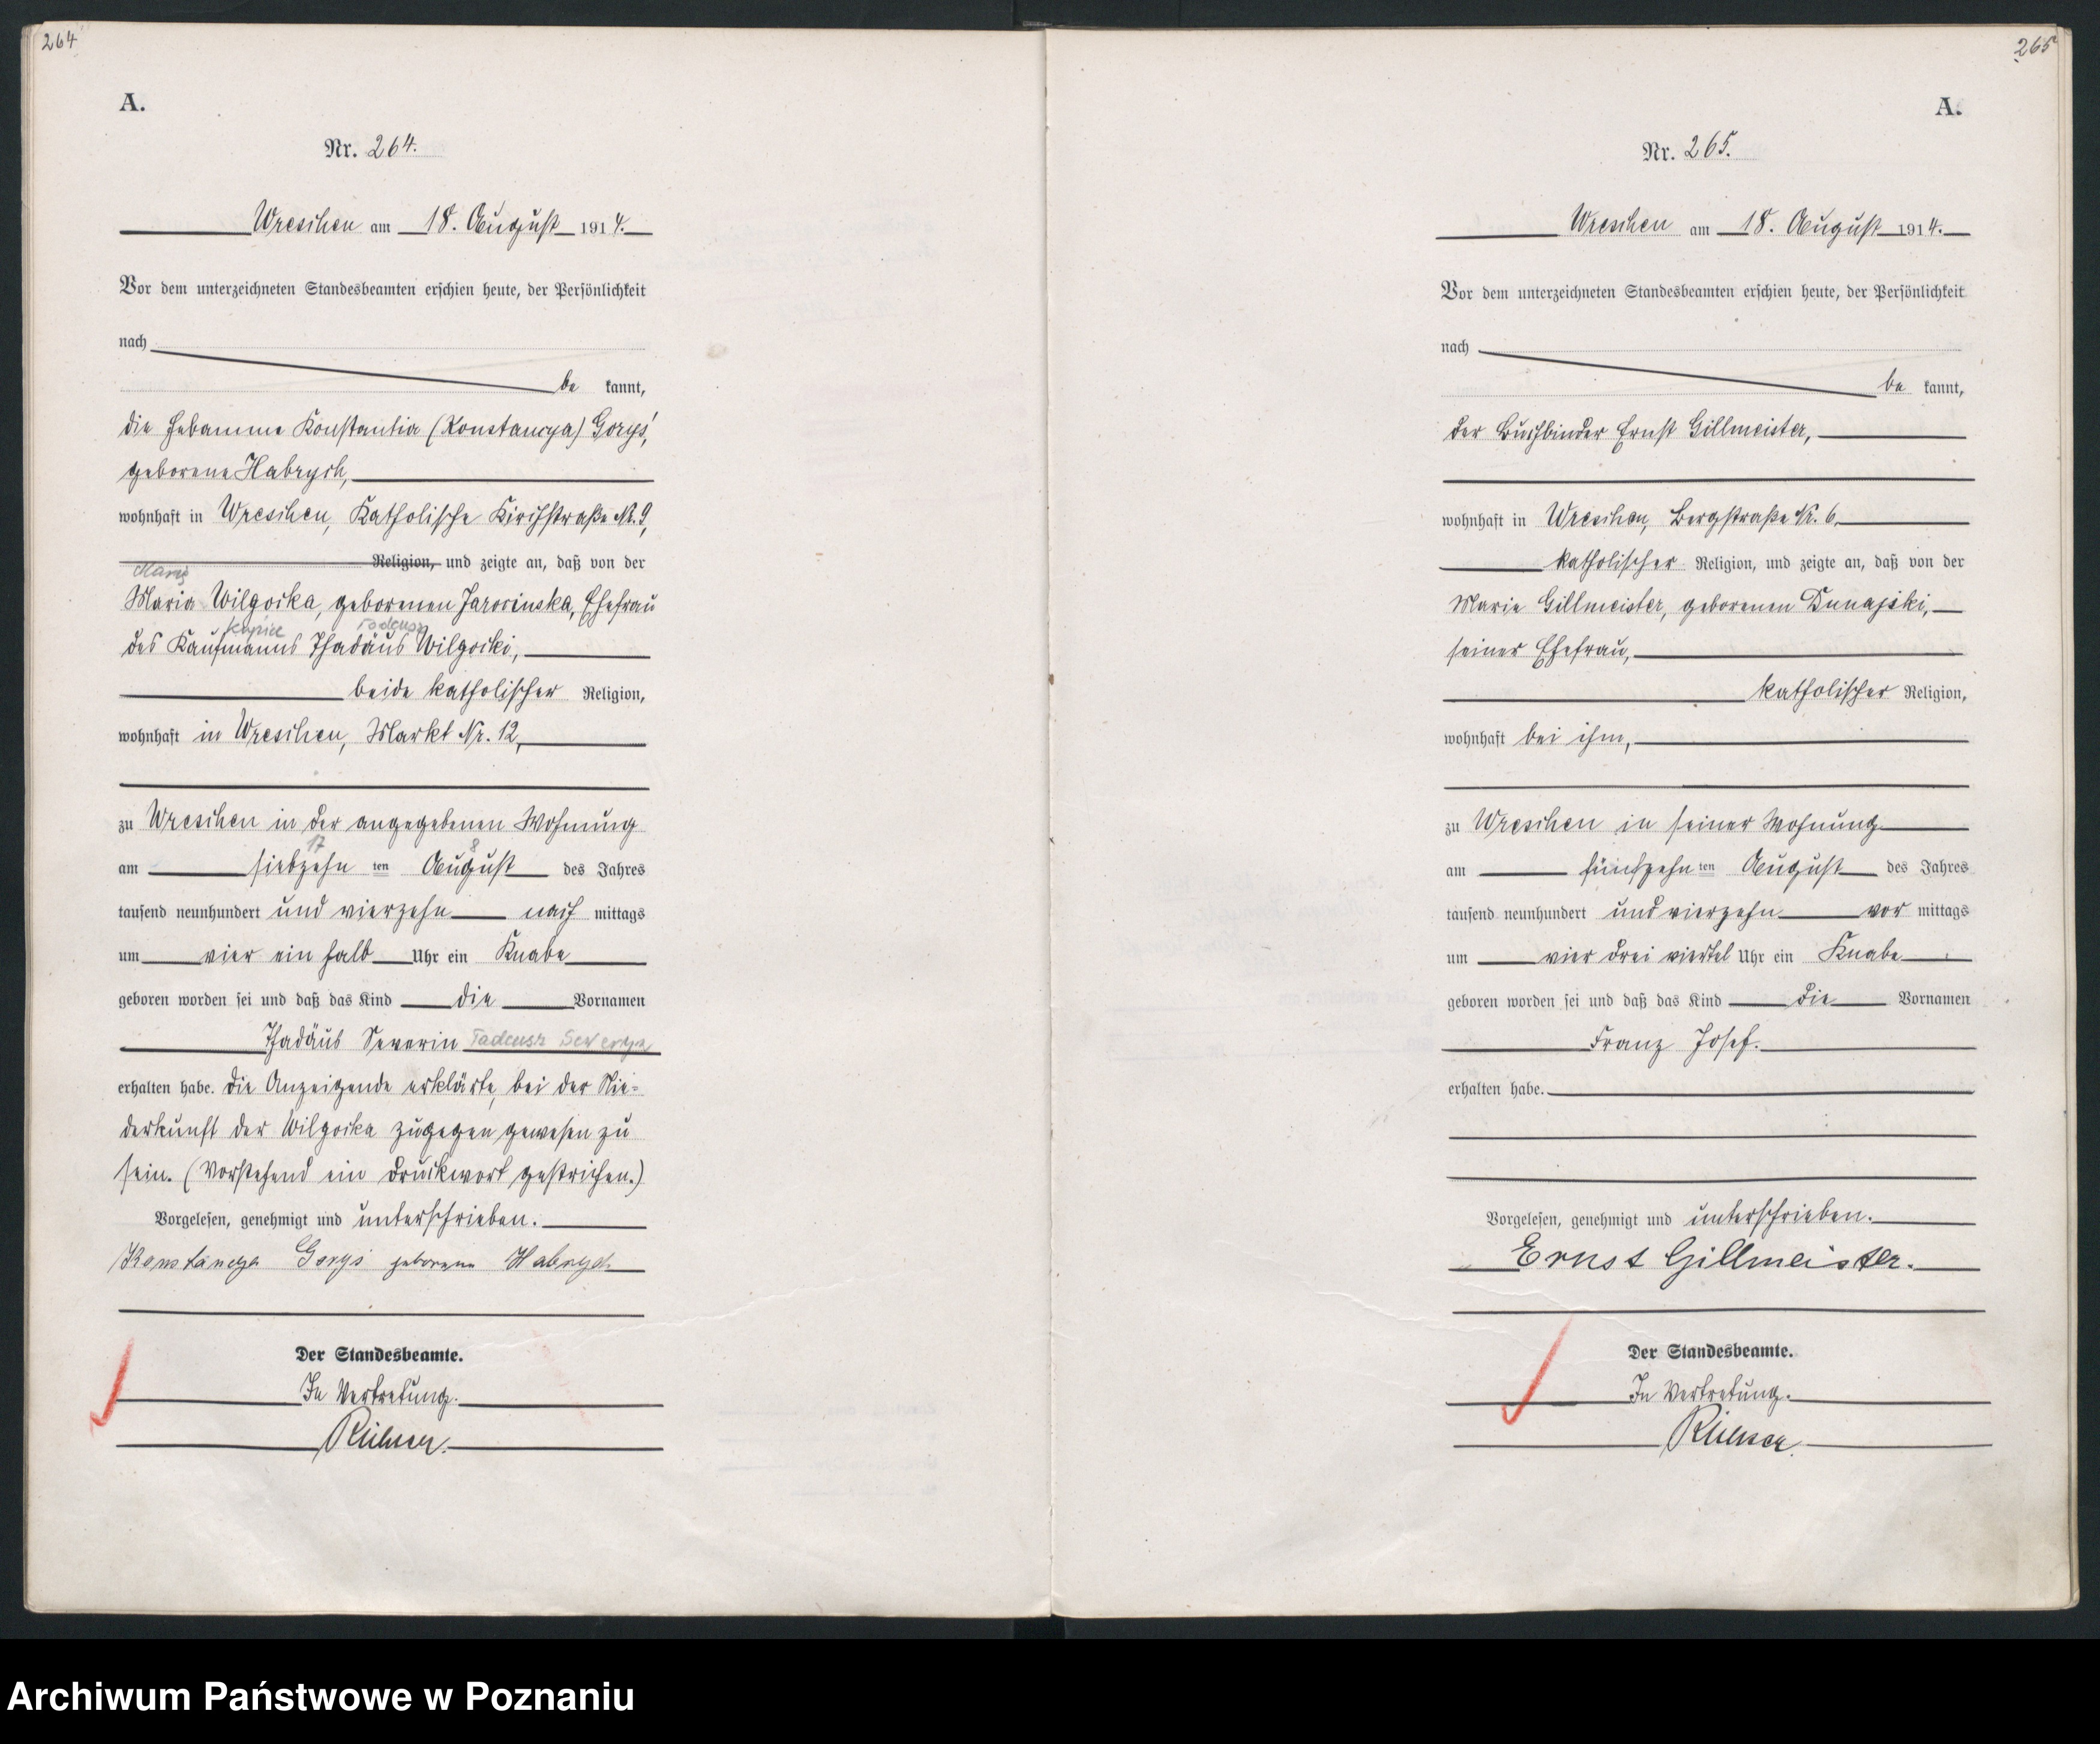 264
A.
Nr. 264.
Wreschen am 18. August 1914.
Vor dem unterzeichneten Standesbeamten erschien heute, der Persönlichkeit
nach
be kannt,
die Hebamme Konstantia (Konstancya) Goryś,
geborene Habrych,
wohnhaft in Wreschen, Katholische Kirchstraße Nr. 9,
Religion, und zeigte an, daß von der
Maria Wilgocka, geborenen Jarocinska, Ehefrau
kupiec Tadeusz
des Kaufmanns Thadäus Wilgocki,
beide katholischer Religion,
wohnhaft in Wreschen, Markt Nr. 12,
zu Wreschen in der angegebenen Wohnung
17 8
am siebzehn ten August des Jahres
tausend neunhundert und vierzehn nach mittags
um vier ein halb Uhr ein Knabe
geboren worden sei und daß das Kind die Vornamen
Thadäus Severin Tadeusz Seweryn
erhalten habe. Die Anzeigende erklärte, bei der Nie-
derkunft der Wilgocka zugegen gewesen zu
sein. (Vorstehend ein Druckwort gestrichen.)
Vorgelesen, genehmigt und unterschrieben.
Konstancya Goryś geborene Habrych
Der Standesbeamte.
In Vertretung.
265
A.
Nr. 265.
Wreschen am 18. August 1914.
Vor dem unterzeichneten Standesbeamten erschien heute, der Persönlichkeit
nach
be kannt,
der Buchbinder Ernst Gillmeister,
wohnhaft in Wreschen, Bergstraße Nr. 6,
katholischer Religion, und zeigte an, daß von der
Marie Gillmeister, geborenen Dunajski,
seiner Ehefrau,
katholischer Religion,
wohnhaft bei ihm,
zu Wreschen in seiner Wohnung
am fünfzehn ten August des Jahres
tausend neunhundert und vierzehn vor mittags
um vier drei viertel Uhr ein Knabe
geboren worden sei und daß das Kind die Vornamen
Franz Josef.
erhalten habe.
Vorgelesen, genehmigt und unterschrieben.
Ernst Gillmeister.
Der Standesbeamte.
In Vertretung.
Archiwum Państwowe w Poznaniu